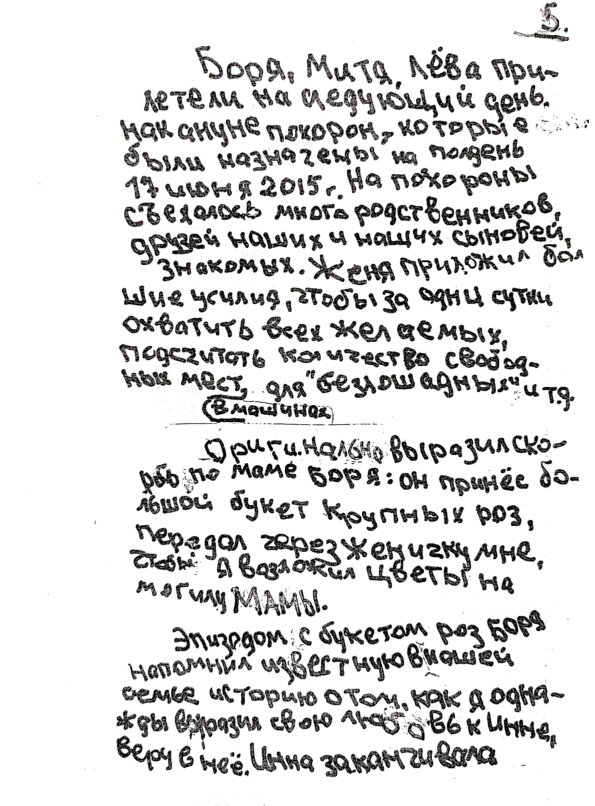 5.
Боря, Митя, Лёва при-
летели на следующий день.
накануне похорон, которые
были назначены на полдень
17 июня 2015г. На похороны
съехалось много родственников,
друзей наших и наших сыновей,
знакомых. Женя приложил боль
шие усилия, чтобы за одни сутки
охватить всех желаемых,
подсчитать количество свобод-
ных мест, для "безлошадных" и т.д.
в машинах
Оригинально выразил ско-
рбь по маме Боря: он принёс бо-
льшой букет крупных роз,
передал через Женичку мне,
чтобы я возложил цветы на
могилу МАМЫ.
Эпизодом с букетом роз Боря
напомнил известную в нашей
семье историю о том, как я одна-
жды выразил свою любовь к Инне,
веру в неё. Инна заканчивала